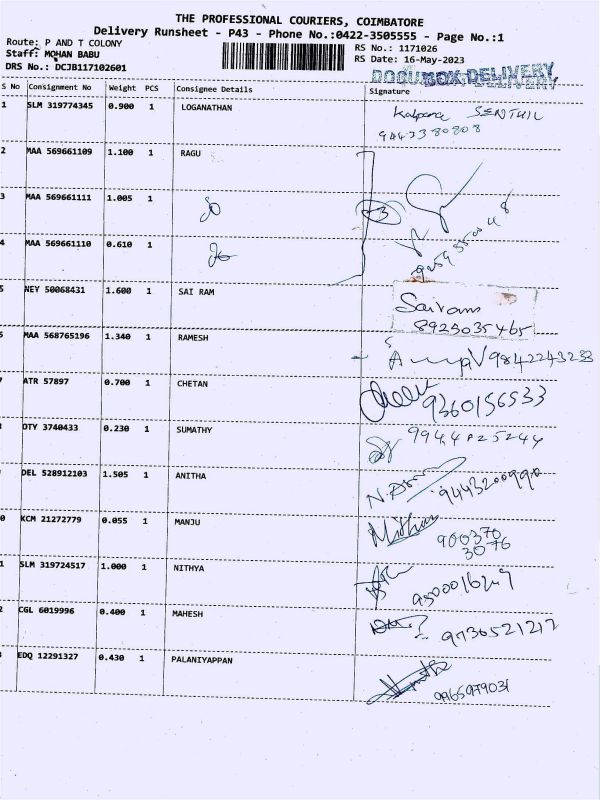 THE PROFESSIONAL COURIERS, COIMBATORE
Delivery Runsheet - P43 - Phone No.:0422-3505555 - Page No.:1
Route: P AND T COLONY
Staff: MOHAN BABU
DRS No.: DCJB117102601
RS No.: 1171026
RS Date: 16-May-2023
DOCUMBOX DELIVERY
S No Consignment No Weight PCS Consignee Details Signature
1 SLM 319774345 0.900 1 LOGANATHAN Kalpana SENTHIL
9443380808
2 MAA 569661109 1.100 1 RAGU
3 MAA 569661111 1.005 1 do 3
4 MAA 569661110 0.610 1 do
5 NEY 50068431 1.600 1 SAI RAM Sairam
8925035465
6 MAA 568765196 1.340 1 RAMESH 9842243233
7 ATR 57897 0.700 1 CHETAN 9360156533
8 OTY 3740433 0.230 1 SUMATHY
9 DEL 528912103 1.505 1 ANITHA 9443200990
0 KCM 21272779 0.055 1 MANJU 900370
3076
1 SLM 319724517 1.000 1 NITHYA
2 CGL 6019996 0.400 1 MAHESH 9736521217
3 EDQ 12291327 0.430 1 PALANIYAPPAN 9965979031